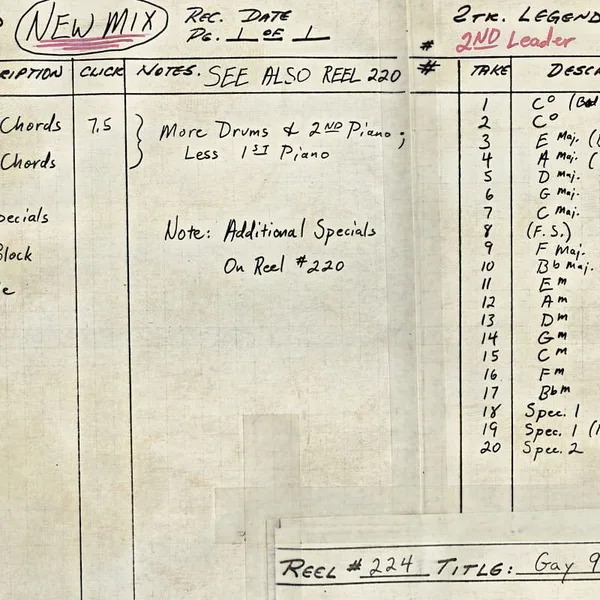 NEW MIX
REC. DATE
PG. 1 OF 1
CLICK NOTES. SEE ALSO REEL 220
Chords 7.5 More Drums & 2ND Piano;
Chords Less 1ST Piano
Note: Additional Specials
On Reel #220
2TK. LEGEND
# 2ND Leader
# TAKE
1 C°
2 C°
3 E Maj.
4 A Maj. (
5 D Maj.
6 G Maj.
7 C Maj.
8 (F.S.)
9 F Maj.
10 Bb Maj.
11 Em
12 Am
13 Dm
14 Gm
15 Cm
16 Fm
17 Bbm
18 Spec. 1
19 Spec. 1
20 Spec. 2
REEL #224 TITLE: Gay 9